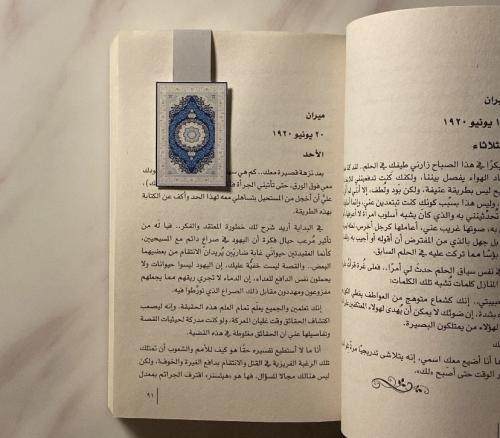 ميران
٢٠ يونيو ١٩٢٠
الأحد
بعد نزهة قصيرة معك.. كم هي
معي فوق الورق، حتى تأتيني الجرأة
عليَّ أن أخجل من المستحيل بتساهلي معه لهذا الحد وأكف عن الكتابة
بهذه الطريقة.
في البداية أريد شرح لك خطورة المعتقد والفكر.. فيا له من
تأثير مُرعب حيال فكرة أن اليهود في صراعٍ دائم مع المسيحيين،
كأنما العقيدتين حيوانَي غابة ضاريَين يُريدان الانتقام من بعضيهما
البعض.. والقصة ليست خفيَّة عليك، إن اليهود ليسوا حيوانات ولا
يحملون نفس الدافع للعداء، إن الدماء لا تجري ريقهم مما يجعلهم
مفزوعون ومهددون مقابل ذلك الصراع الذي تورَّطوا فيه.
إنك تعلمين والجميع يعلم تمام العلم هذه الحقيقة، وإنه ليصعب
اكتشاف الحقائق وقت غليان المعركة، ولو كنت مدركة لحيثيات القصة
وتفاصيلها علي أن الحقائق مغلوطة في هذه القضية.
أنا ما لا أستطيع تفسيره حقًا هو كيف للأمم والشعوب أن تمتلك
تلك الرغبة الغريزية في القتل والانتقام بدافع الغيرة والخوف، ولكن
ليس هنالك مجالا للسؤال، فها هو «هيتسنر» اقترف الجرائم بمعدل
٩١
ميران
يونيو ١٩٢٠
في هذا الصباح زارني طيفك في الحلم
الهواء يفصل بيننا، ولكنك كنت تدفعينني
ليس بطريقة عنيفة، ولكن بود ولطف، إلا أنني
وليس هذا بسبب كونك كنت تبتعدين عني، وإنما
تحدثينني به والذي كان يشبه أسلوب امرأة
به، صوتها غريب عني، أعاملها كرجل أخرس
بل جهل بالذي من المفترض أن أقوله أو أجيب به
بؤسًا مما تركت عليه في الحلم السابق.
في نفس سياق الحلم حدث لي أمرًا.. فعلى
المنازل كلمات تشبه تلك الكلمات:
حبيبتي.. إنك كشعاع متوهج من العواطف
بشدة، إن ضوئك لا يمكن أن يهدى لهؤلاء
لهؤلاء من يمتلكون البصيرة.
أنا أضيع معك اسمي، إنه يتلاشى تدريجيًا
الوقت حتى أصبح «لك».